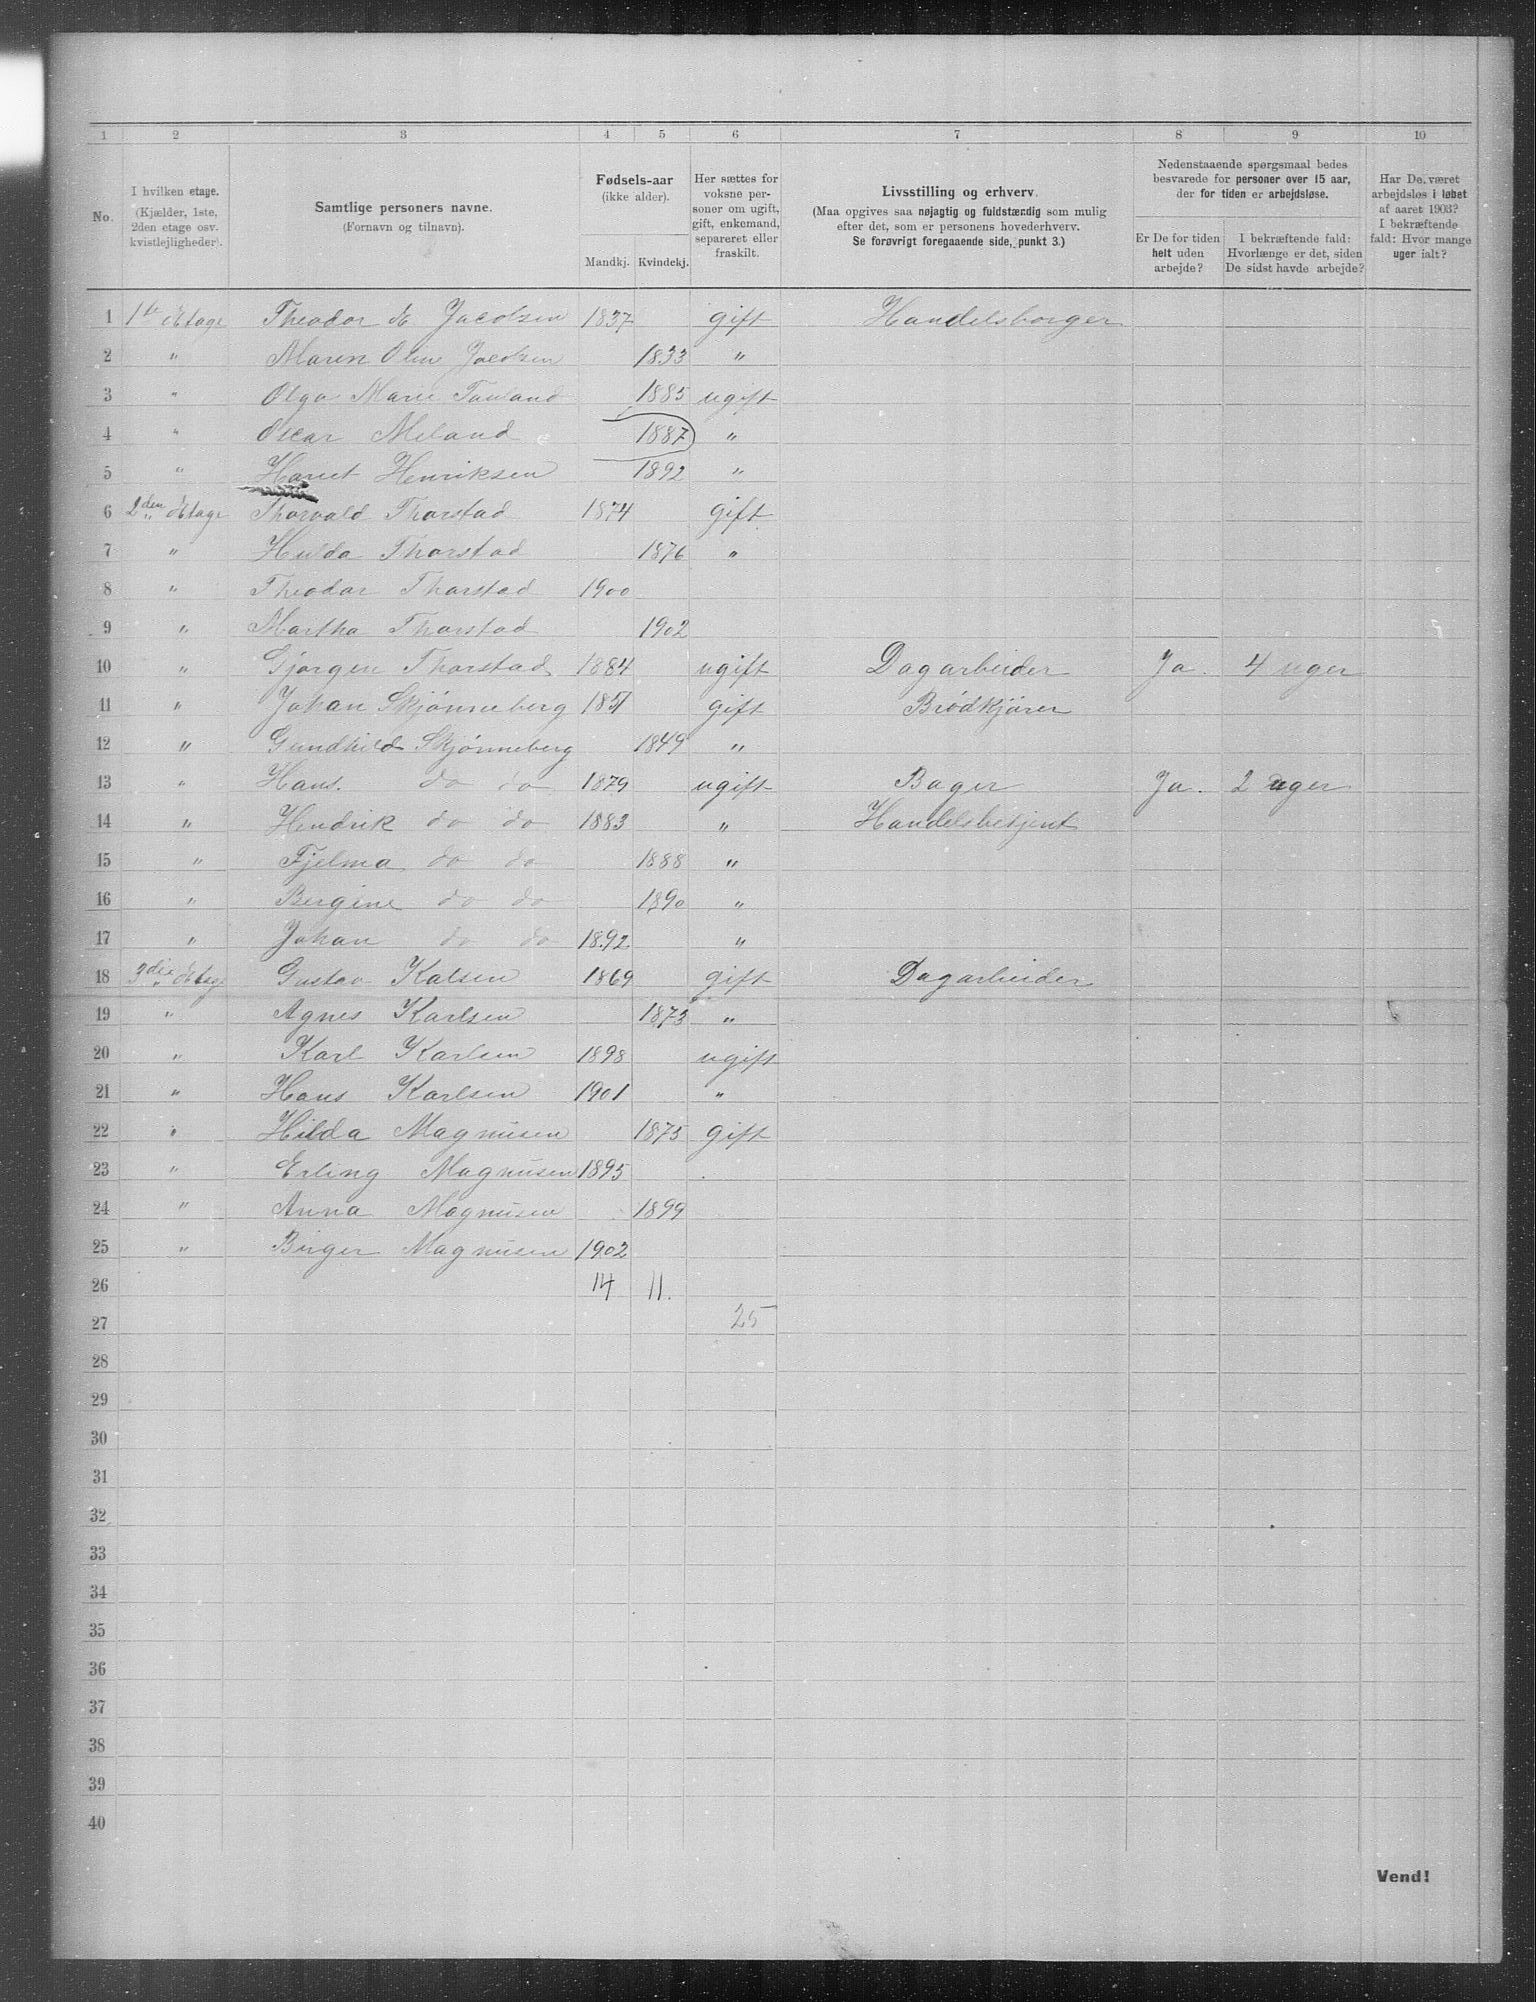 1 2 3 4 5 6 7 8 9 10
No.
I hvilken etage. (Kjælder, 1ste, 2den etage osv. kvistlejligheder).
Samtlige personers navne. (Fornavn og tilnavn).
Fødsels-aar (ikke alder). Mandkj. Kvindekj.
Her sættes for voksne personer om ugift, gift, enkemand, separeret eller fraskilt.
Livsstilling og erhverv. (Maa opgives saa nøjagtig og fuldstændig som mulig efter det, som er personens hovederhverv. Se forøvrigt foregaaende side, punkt 3.)
Nedenstaaende spørgsmaal bedes besvarede for personer over 15 aar, der for tiden er arbejdsløse.
Er De for tiden helt uden arbejde?
I bekræftende fald: Hvorlænge er det, siden De sidst havde arbejde?
Har De været arbejdsløs i løbet af aaret 1903? I bekræftende fald: Hvor mange uger ialt?
1 1ste Etage Theodor E Jacobsen 1837 gift Handelsborger
2 " Maren Oline Jacobsen 1833 "
3 " Olga Marie 1885 ugift
4 " Oscar Meland 1887 "
5 " Henriksen 1892 "
6 2den Etage Thorvald Thorstad 1874 gift
7 " Hulda Thorstad 1876 "
8 " Theodor Thorstad 1900
9 " Martha Thorstad 1902
10 " Gjørgen Thorstad 1884 ugift Dagarbeider Ja. 4 uger
11 " Johan Skjønneberg 1851 gift Brødkjører
12 " Gundhild Skjønneberg 1849 "
13 " Hans. do do 1879 ugift Bager Ja. 2 uger
14 " Hendrik do do 1883 " Handelsbetjent
15 " Fjelma do do 1888 "
16 " Bergine do do 1890 "
17 " Johan do do 1892 "
18 3die Etage Gustav Kalsen 1869 gift Dagarbeider
19 " Agnes Karlsen 1873 "
20 " Karl Karlsen 1898 ugift
21 " Hans Karlsen 1901 "
22 " Hilda Magnusen 1875 gift
23 " Erling Magnusen 1895
24 " Anna Magnusen 1899
25 " Birger Magnusen 1902
26 14 11.
27 25
28
29
30
31
32
33
34
35
36
37
38
39
40
Vend!